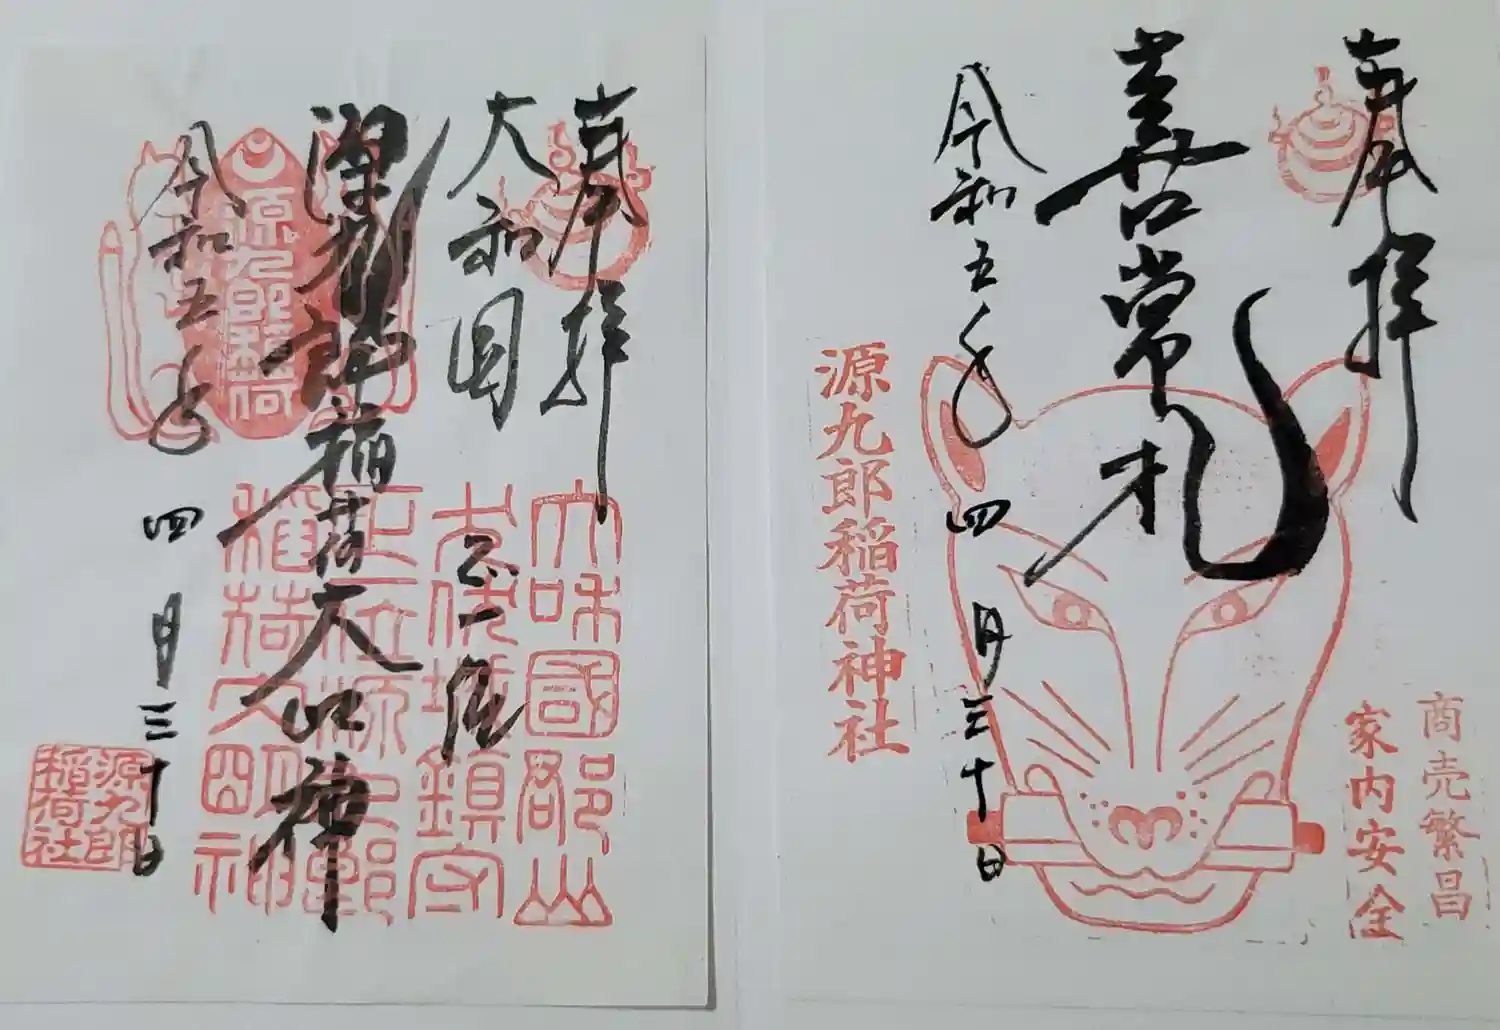 奉拝
大和国
正一位
源九郎稲荷大明神
令和五年
四月三十日
源九郎稲荷
大和國郡山
城鎮守
正一位源九郎
稲荷大明神
源九郎
稲荷社
奉拝
喜常札
令和五年
四月三十日
商売繁昌
家内安全
源九郎稲荷神社